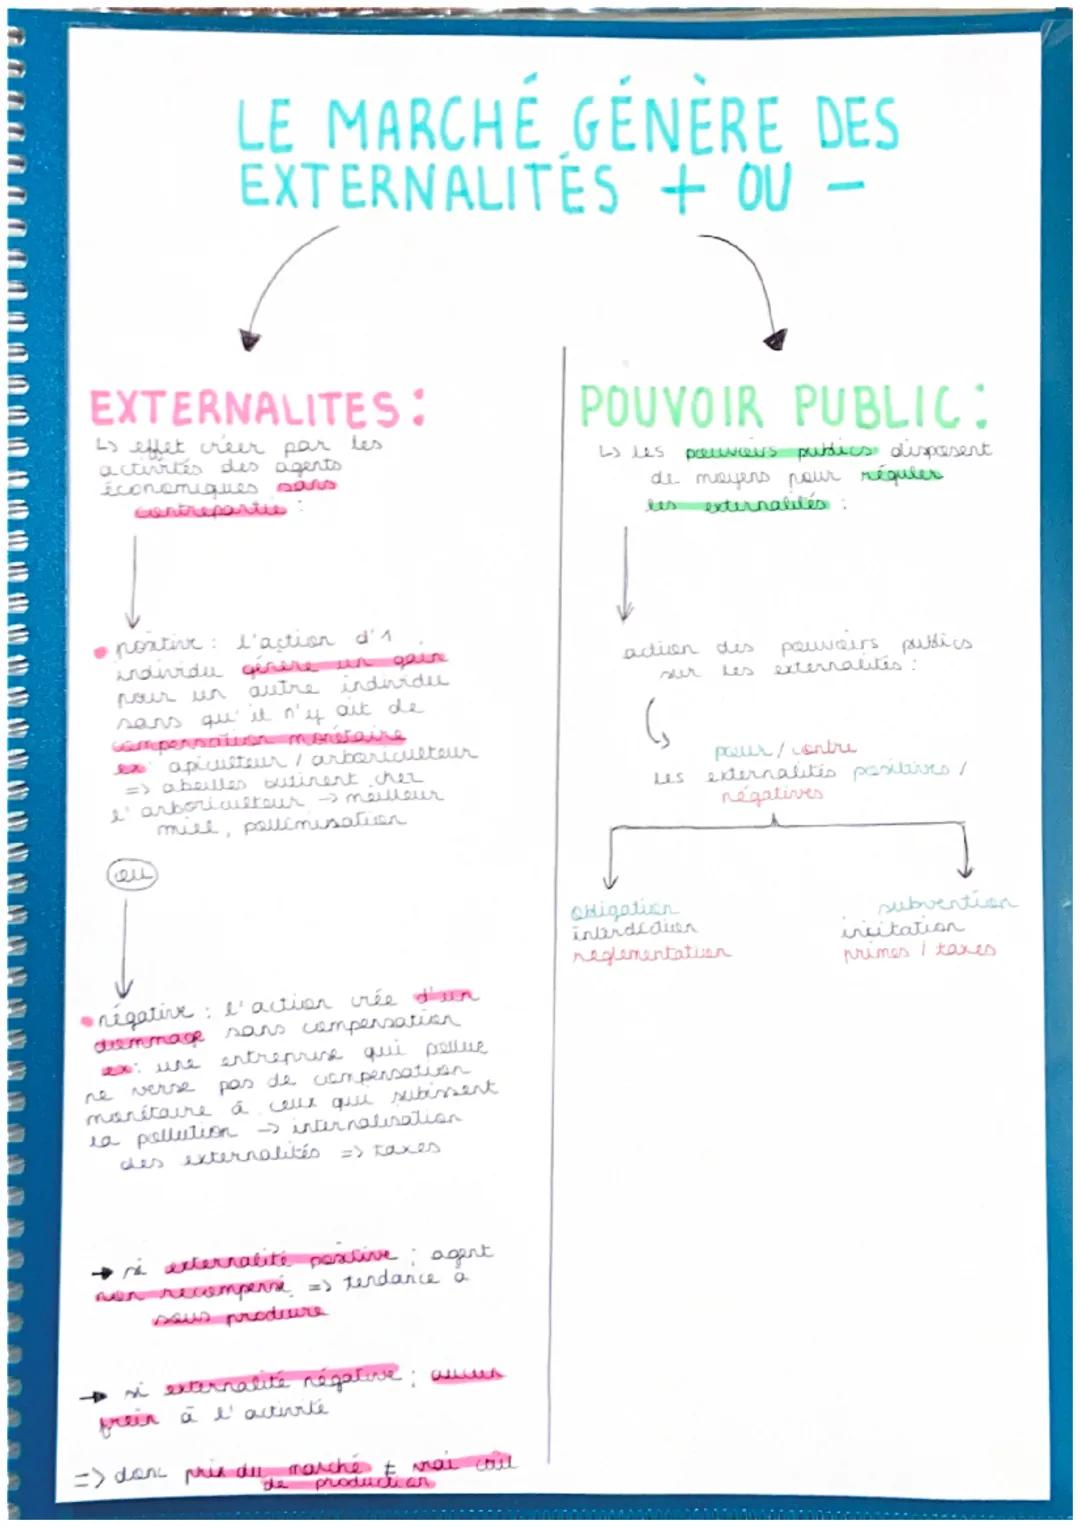 LE MARCHÉ GÉNÈRE DES
EXTERNALITÉS + OU -
EXTERNALITES :
↳ effet créer par les
activités des agents
économiques sans
contrepartie :
• positive : l'action d'1
individu génère un gain
pour un autre individu
sans qu'il n'y ait de
compensation monétaire
ex : apiculteur / arboriculteur
=> abeilles butinent chez
l'arboriculteur → meilleur
miel, pollinisation
ou
• négative : l'action crée d'un
dommage sans compensation
ex : une entreprise qui pollue
ne verse pas de compensation
monétaire à ceux qui subissent
la pollution → internalisation
des externalités => taxes
→ si externalité positive ; agent
non recompensé => tendance à
sous produire
→ si externalité négative ; aucun
frein à l'activité
=> donc prix du marché ≠ vrai coût
de production
POUVOIR PUBLIC :
↳ les pouvoirs publics disposent
de moyens pour réguler
les externalités :
action des pouvoirs publics
sur les externalités :
pour / contre
les externalités positives /
négatives
obligation
interdiction
reglementation
subvention
incitation
primes / taxes